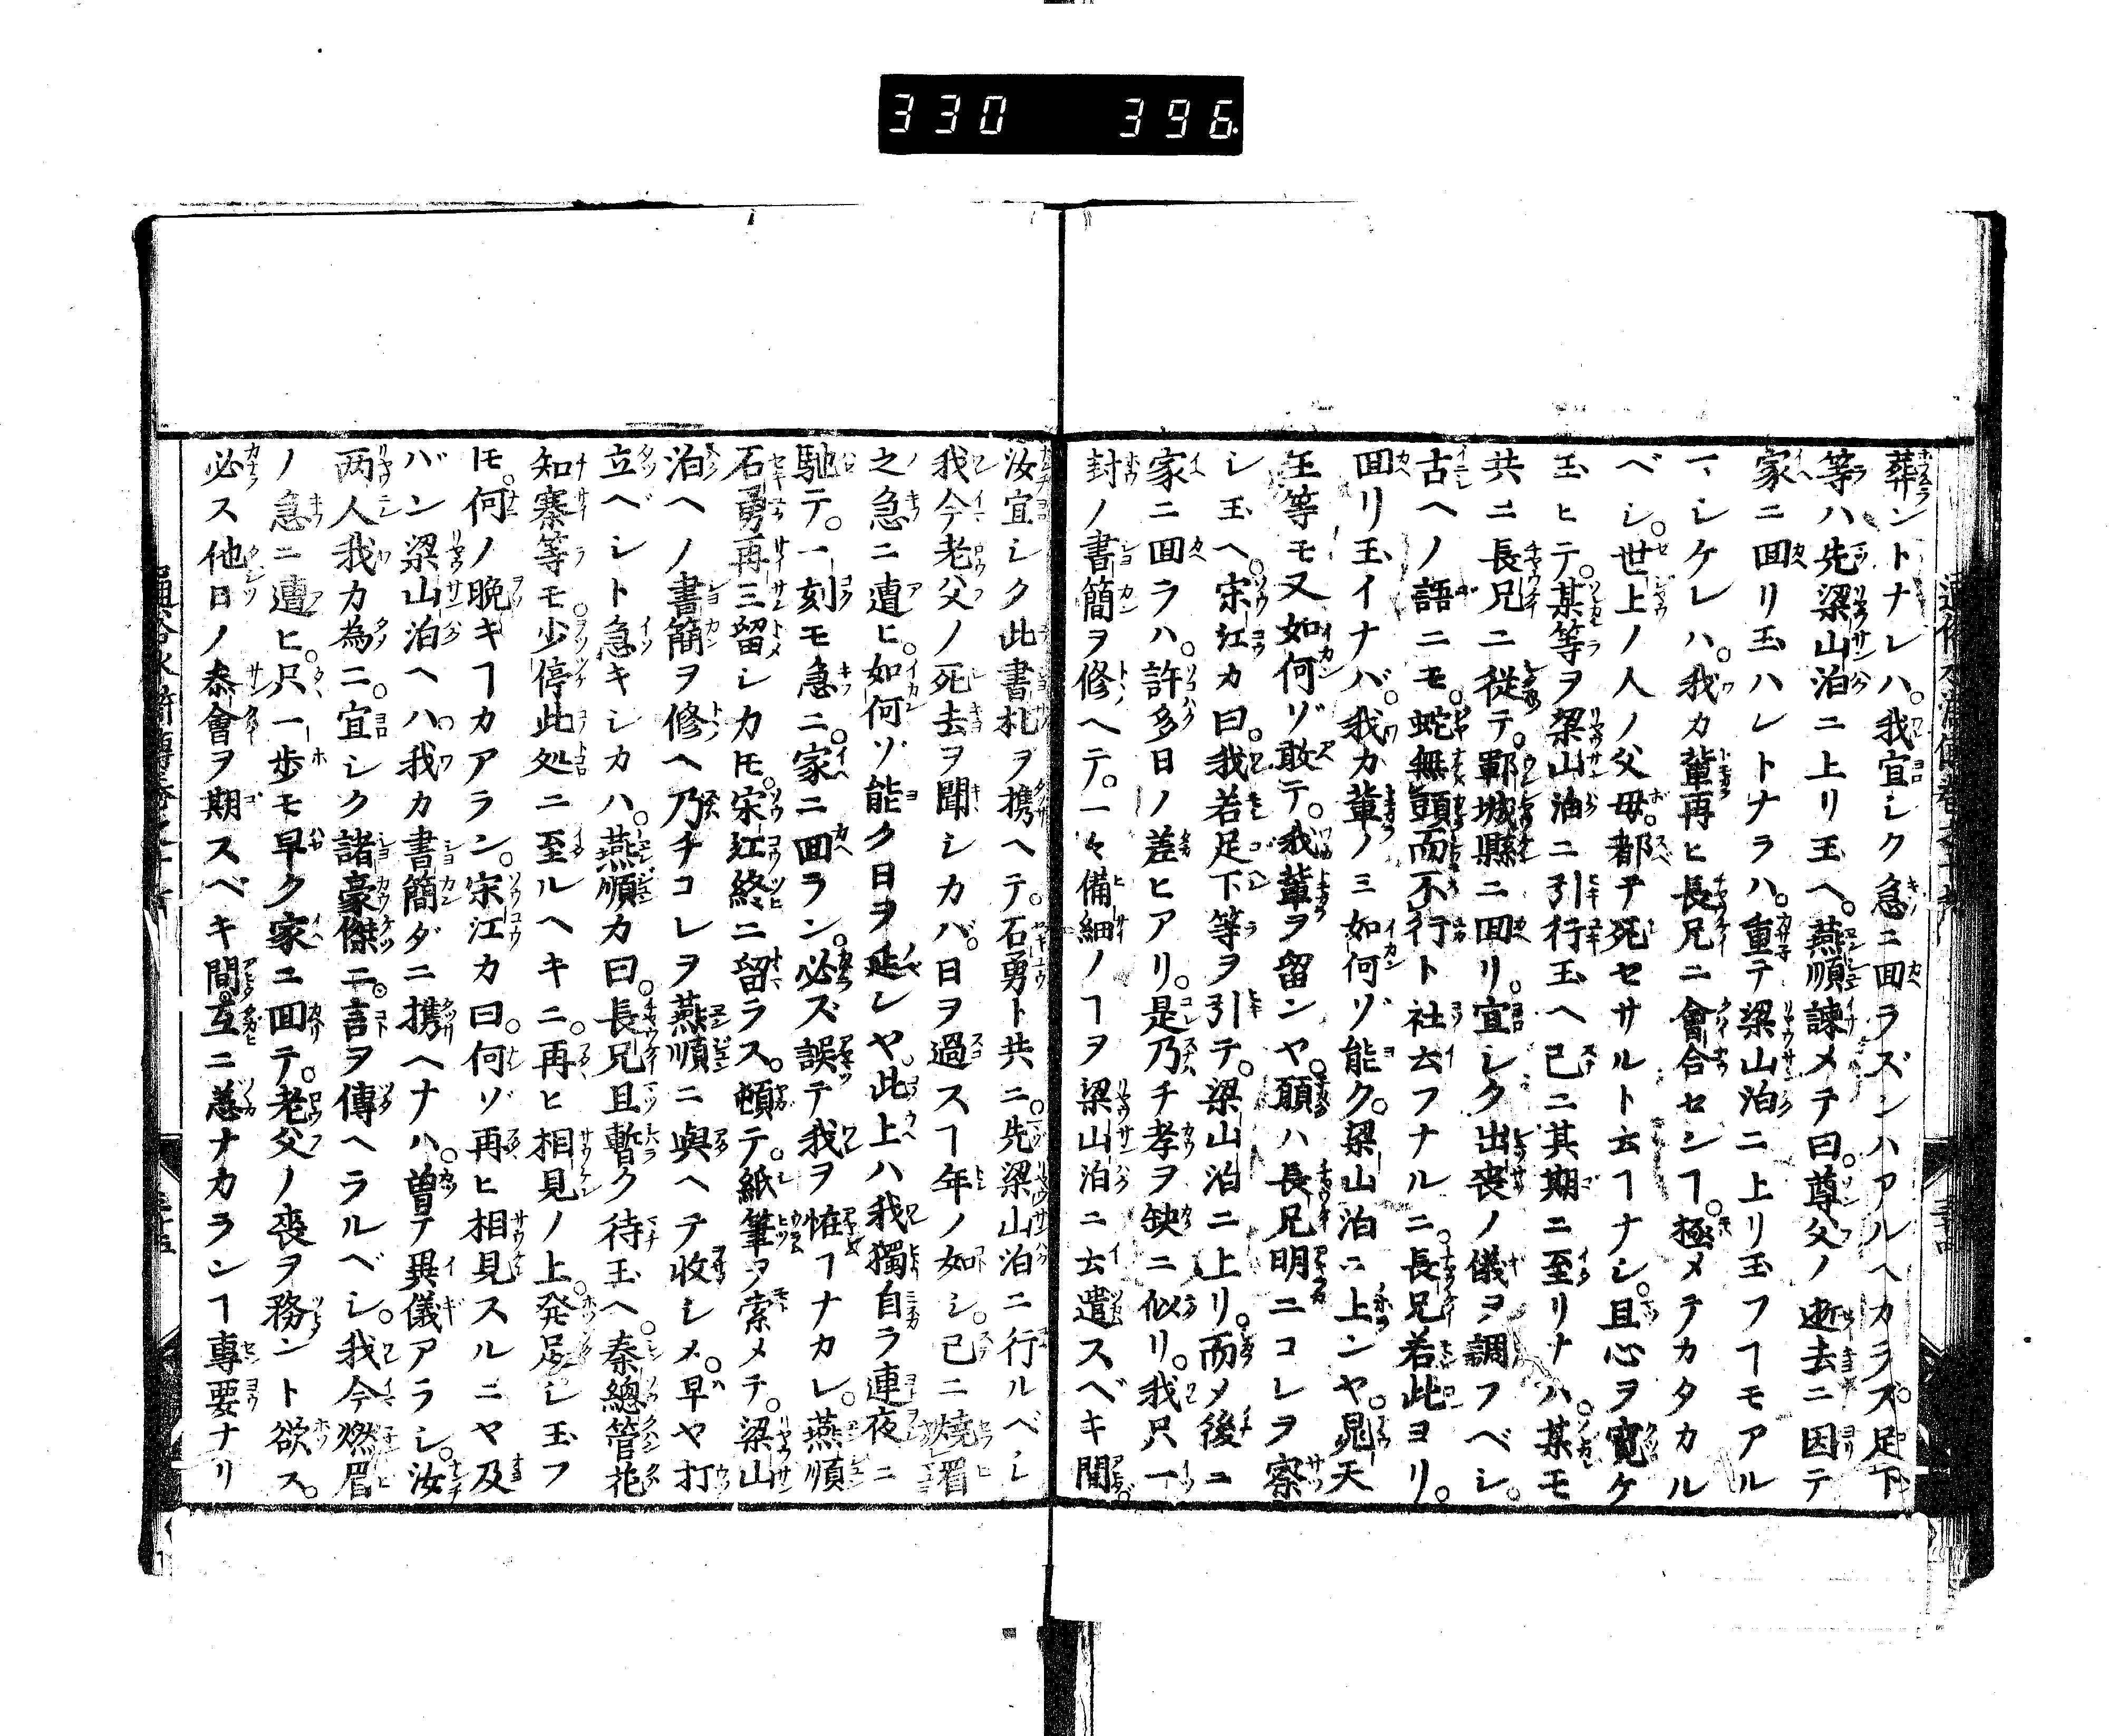 330 396
葬ントナレハ。我宜シク急ニ回ラズンハアルヘカラズ。足下
等ハ先梁山泊ニ上リ玉ヘ。燕順諫メテ曰。尊父ノ逝去ニ因テ
家ニ回リ玉ハレトナラハ。重テ梁山泊ニ上リ玉フヿモアル
マシケレハ。我カ輩再ヒ長兄ニ會合センヿ。極メテカタカル
ベシ。世上ノ人ノ父母。都テ死セサルト云ヿナシ。且心ヲ寛ケ
玉ヒテ。某等ヲ梁山泊ニ引行玉ヘ已ニ其期ニ至リナハ。某モ
共ニ長兄ニ從テ。鄆城縣ニ回リ。宜シク出喪ノ儀ヲ調フベシ。
古ヘノ語ニモ。蛇無頭而不行ト社云フナルニ。長兄若此ヨリ。
回リ玉イナバ。我カ輩ノミ如何ゾ能ク。梁山泊ニ上ンヤ。晁天
王等モ又如何ゾ敢テ。我輩ヲ留ンヤ。願ハ長兄明ニコレヲ察
シ玉ヘ。宋江カ曰。我若足下等ヲ引テ。梁山泊ニ上リ。而メ後ニ
家ニ回ラハ。許多日ノ差ヒアリ。是乃チ孝ヲ缺ニ似リ。我只一
封ノ書簡ヲ修ヘテ。一々備細ノヿヲ梁山泊ニ云遣スベキ間。
汝宜シク此書札ヲ携ヘテ。石勇ト共ニ。先梁山泊ニ行ルベシ
我今老父ノ死去ヲ聞シカバ。日ヲ過スヿ年ノ如シ。已ニ燒眉
之急ニ遭ヒ。如何ゾ能ク日ヲ延シヤ。此上ハ我獨自ラ連夜ニ
馳テ。一刻モ急ニ。家ニ回ラン。必ズ誤テ我ヲ恠ヿナカレ。燕順
石勇再三留シカ𪜈。宋江終ニ留ラス。頓テ。紙筆ヲ索メテ。梁山
泊ヘノ書簡ヲ修ヘ乃チコレヲ燕順ニ與ヘテ收シメ。早ヤ打
立ヘシト急キシカハ。燕順カ曰。長兄且暫ク待玉ヘ。秦總管花
知寨等モ少停此処ニ至ルヘキニ。再ヒ相見ノ上。発足シ玉フ
𪜈。何ノ晩キヿカアラン。宋江カ曰。何ゾ再ヒ相見スルニヤ及
バン梁山泊ヘハ我カ書簡ダニ携ヘナハ。曽テ異儀アラシ。汝
两人我カ為ニ。宜シク諸豪傑ニ。言ヲ傳ヘラルベシ。我今燃眉
ノ急ニ遭ヒ。只一歩モ早ク家ニ回テ。老父ノ喪ヲ務ント欲ス。
必ス他日ノ参會ヲ期スベキ間。互ニ恙ナカランヿ專要ナリ